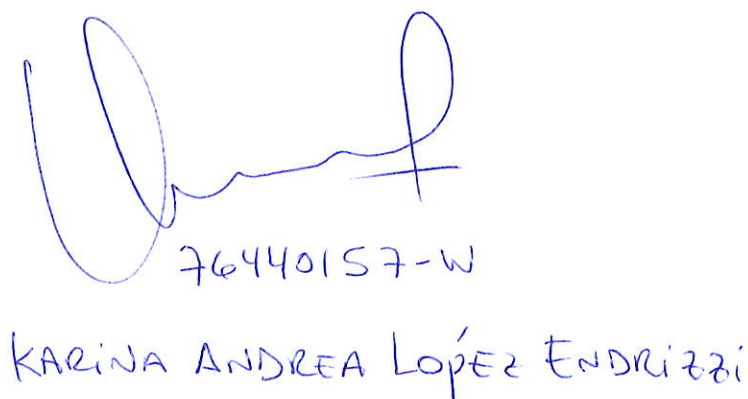 76440157-W
KARINA ANDREA LOPÉZ ENDRIZZI